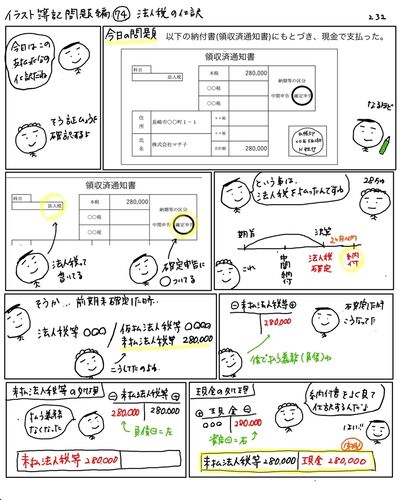 イラスト簿記問題編 74 法人税の仕訳
232
今日の問題
以下の納付書(領収済通知書)にもとづき、現金で支払った。
今日はこの
仕訳だね
領収済通知書
科目
法人税
本税 280,000
○○税
○○税
納期等の区分
中間申告 確定申告
住所
長崎市○○町1-1
氏名
株式会社マチ子
合計額 280,000
なるほど
領収済通知書
科目
法人税
本税 280,000
○○税
納期等の区分
中間申告 確定申告
法人税って
書いてる
確定申告に
○ついてる
という事は、
法人税を払ったんですね
期首
中間納付
決算
2ヶ月以内
法人税
確定
納付
これ
そうか…前期末確定した時、
法人税等 ○○○ / 仮払法人税等 ○○○
未払法人税等 280,000
こうしてたよね
⊖未払法人税等⊕
280,000
確定した時
こうなってた
後で払う義務(負債)ね
未払法人税等の処理
払う義務
なくなった
⊖未払法人税等⊕
280,000 280,000
負債⊖=左
現金の処理
⊕現金⊖
○○○ 280,000
資産⊖=右
納付書をよく見て
仕訳するんだよ
はい!!
未払法人税等 280,000 現金 280,000